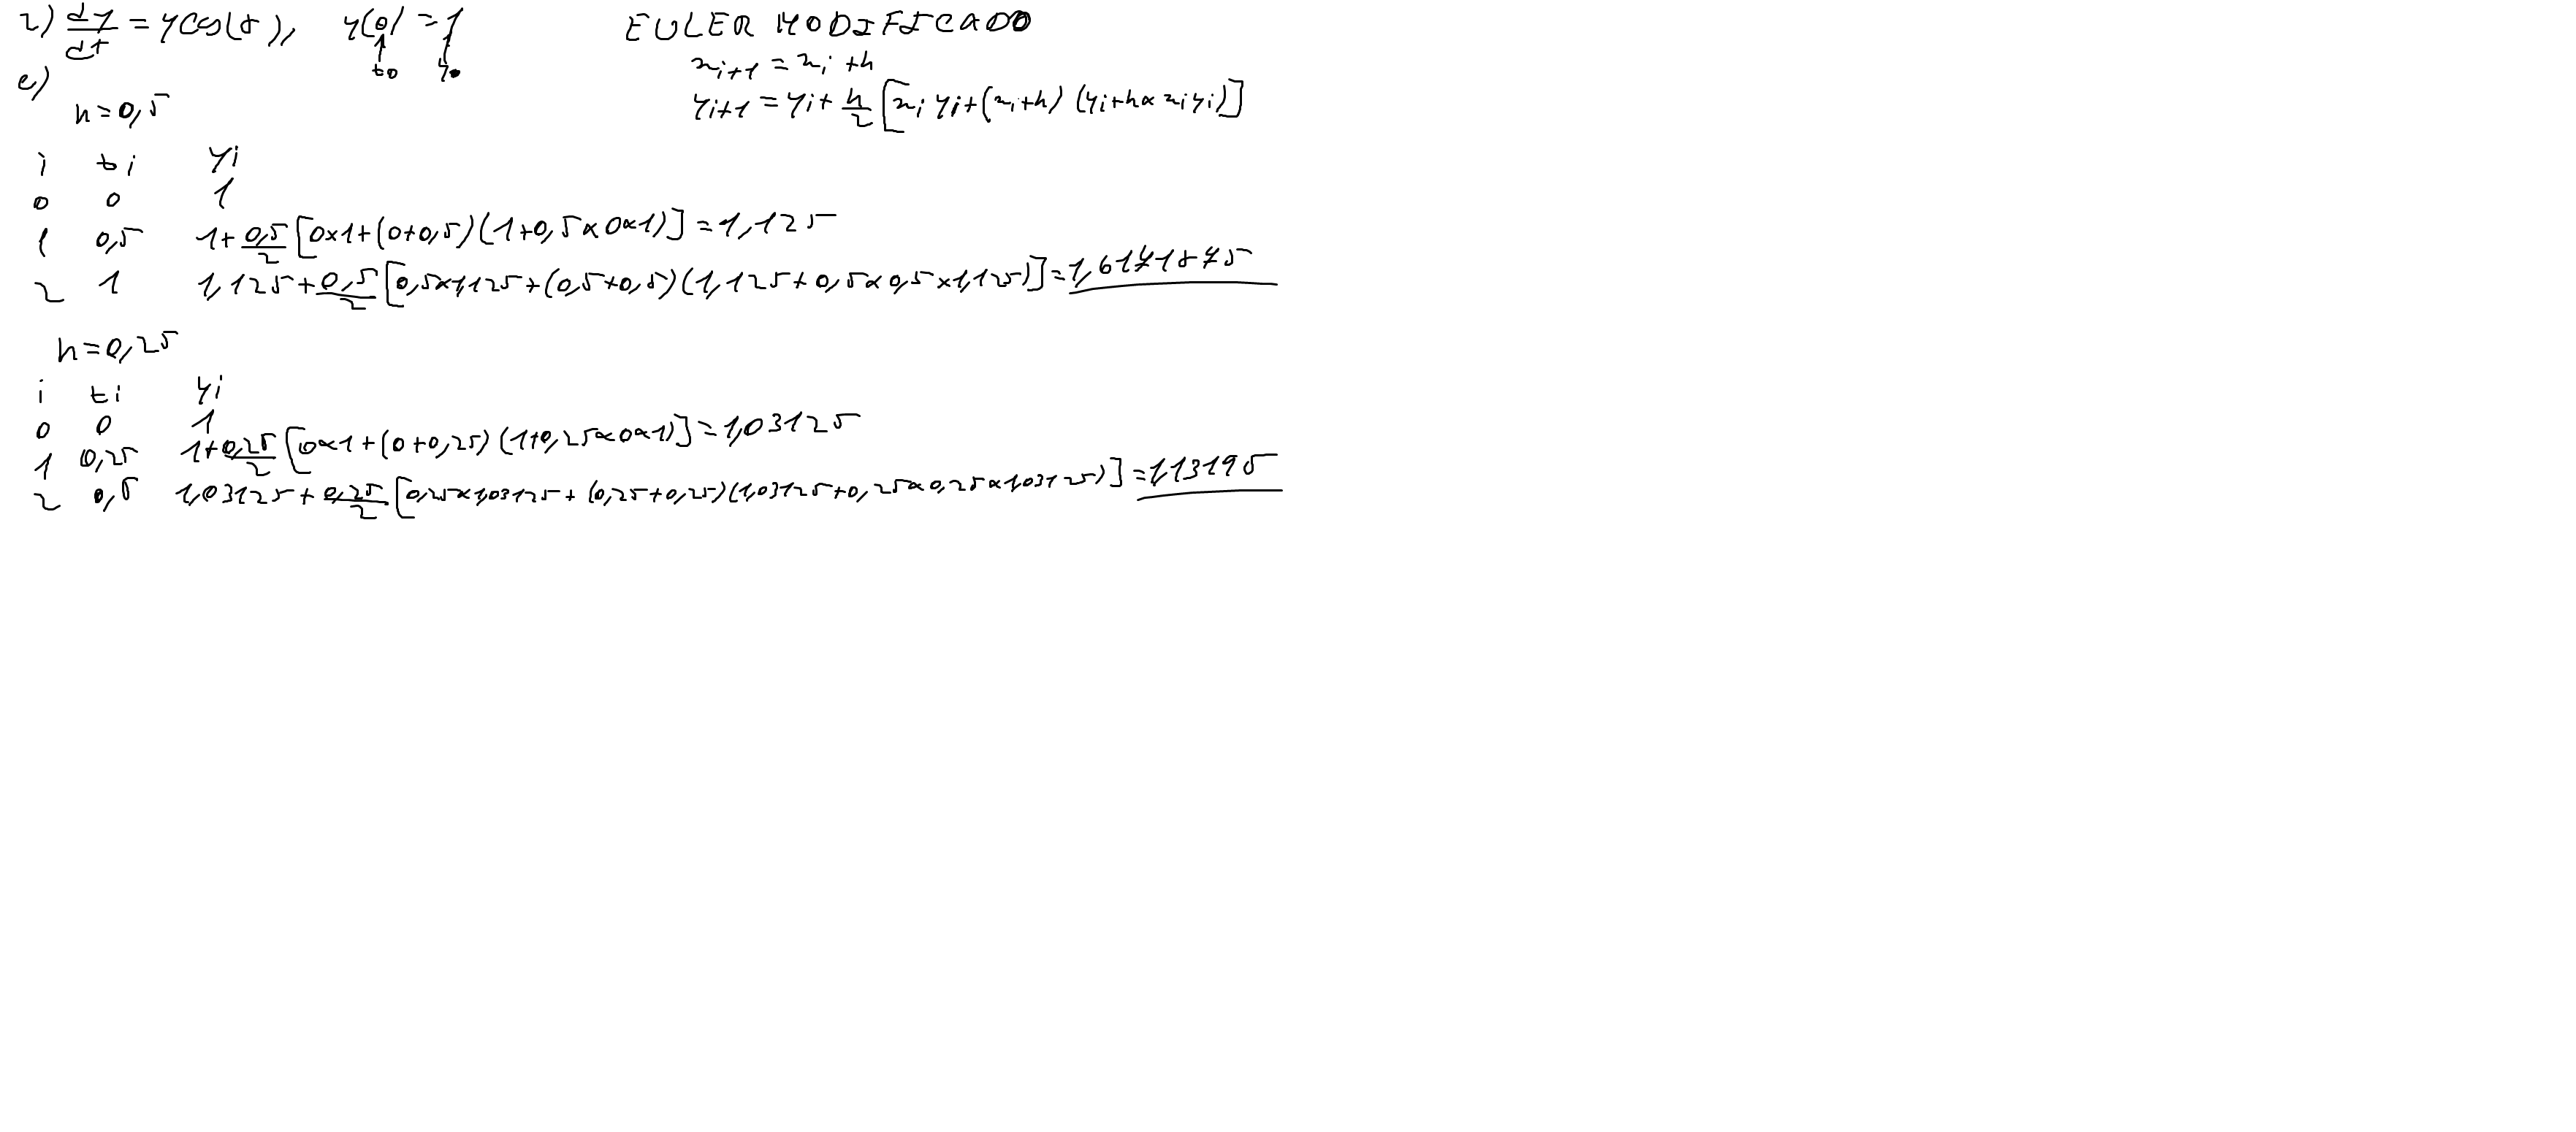 2) dy/dt = y cos(t), y(0) = 1 EULER MODIFICADO
t0 y0 x_{i+1} = x_i + h
e) y_{i+1} = y_i + h/2 [x_i y_i + (x_i + h) (y_i + h × x_i y_i)]
h = 0,5
i ti yi
0 0 1
1 0,5 1 + 0,5/2 [0×1 + (0+0,5) (1+0,5×0×1)] = 1,125
2 1 1,125 + 0,5/2 [0,5×1,125 + (0,5+0,5) (1,125 + 0,5×0,5×1,125)] = 1,6171875
h = 0,25
i ti yi
0 0 1
1 0,25 1 + 0,25/2 [0×1 + (0+0,25) (1+0,25×0×1)] = 1,03125
2 0,5 1,03125 + 0,25/2 [0,25×1,03125 + (0,25+0,25) (1,03125+0,25×0,25×1,03125)] = 1,13195